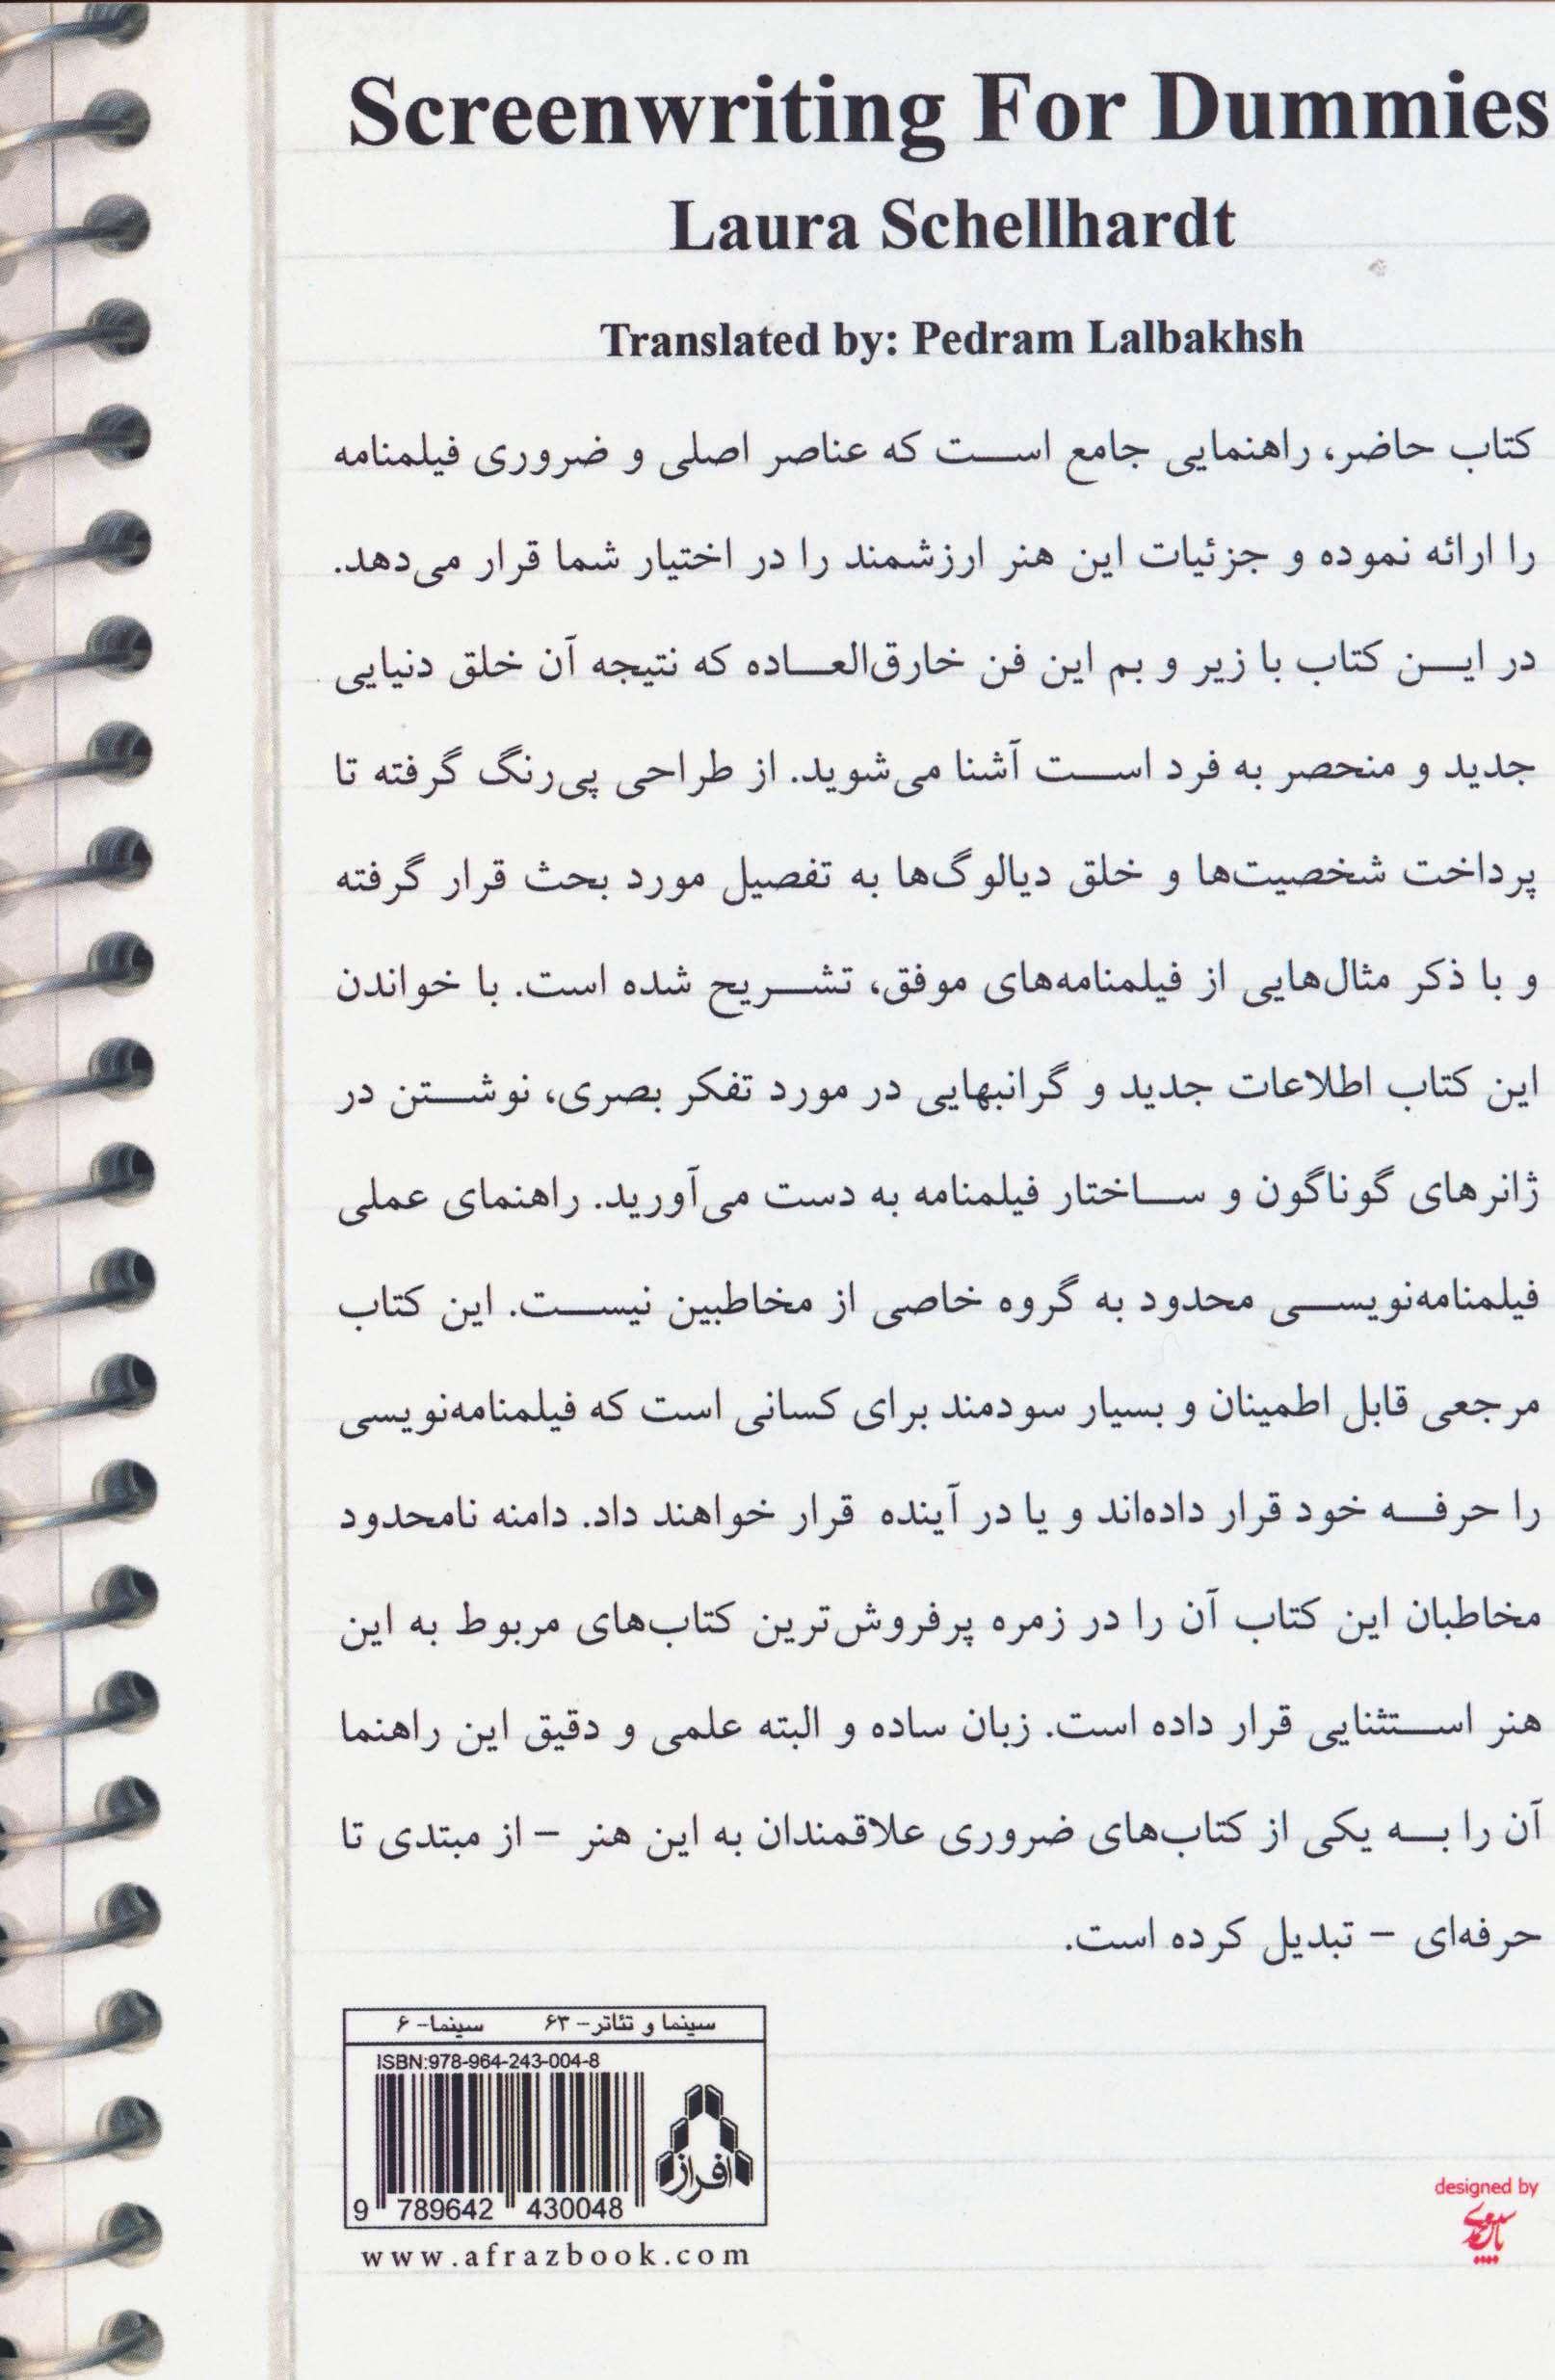 Screenwriting For Dummies
Laura Schellhardt
Translated by: Pedram Lalbakhsh
کتاب حاضر، راهنمایی جامع است که عناصر اصلی و ضروری فیلمنامه
را ارائه نموده و جزئیات این هنر ارزشمند را در اختیار شما قرار می‌دهد.
در این کتاب با زیر و بم این فن خارق‌العاده که نتیجه آن خلق دنیایی
جدید و منحصر به فرد است آشنا می‌شوید. از طراحی پی‌رنگ گرفته تا
پرداخت شخصیت‌ها و خلق دیالوگ‌ها به تفصیل مورد بحث قرار گرفته
و با ذکر مثال‌هایی از فیلمنامه‌های موفق، تشریح شده است. با خواندن
این کتاب اطلاعات جدید و گرانبهایی در مورد تفکر بصری، نوشتن در
ژانرهای گوناگون و ساختار فیلمنامه به دست می‌آورید. راهنمای عملی
فیلمنامه‌نویسی محدود به گروه خاصی از مخاطبین نیست. این کتاب
مرجعی قابل اطمینان و بسیار سودمند برای کسانی است که فیلمنامه‌نویسی
را حرفه خود قرار داده‌اند و یا در آینده قرار خواهند داد. دامنه نامحدود
مخاطبان این کتاب آن را در زمره پرفروش‌ترین کتاب‌های مربوط به این
هنر استثنایی قرار داده است. زبان ساده و البته علمی و دقیق این راهنما
آن را به یکی از کتاب‌های ضروری علاقمندان به این هنر – از مبتدی تا
حرفه‌ای – تبدیل کرده است.
سینما و تئاتر- ۶۳ سینما- ۶
ISBN:978-964-243-004-8
افراز
9 789642 430048
www.afrazbook.com
designed by